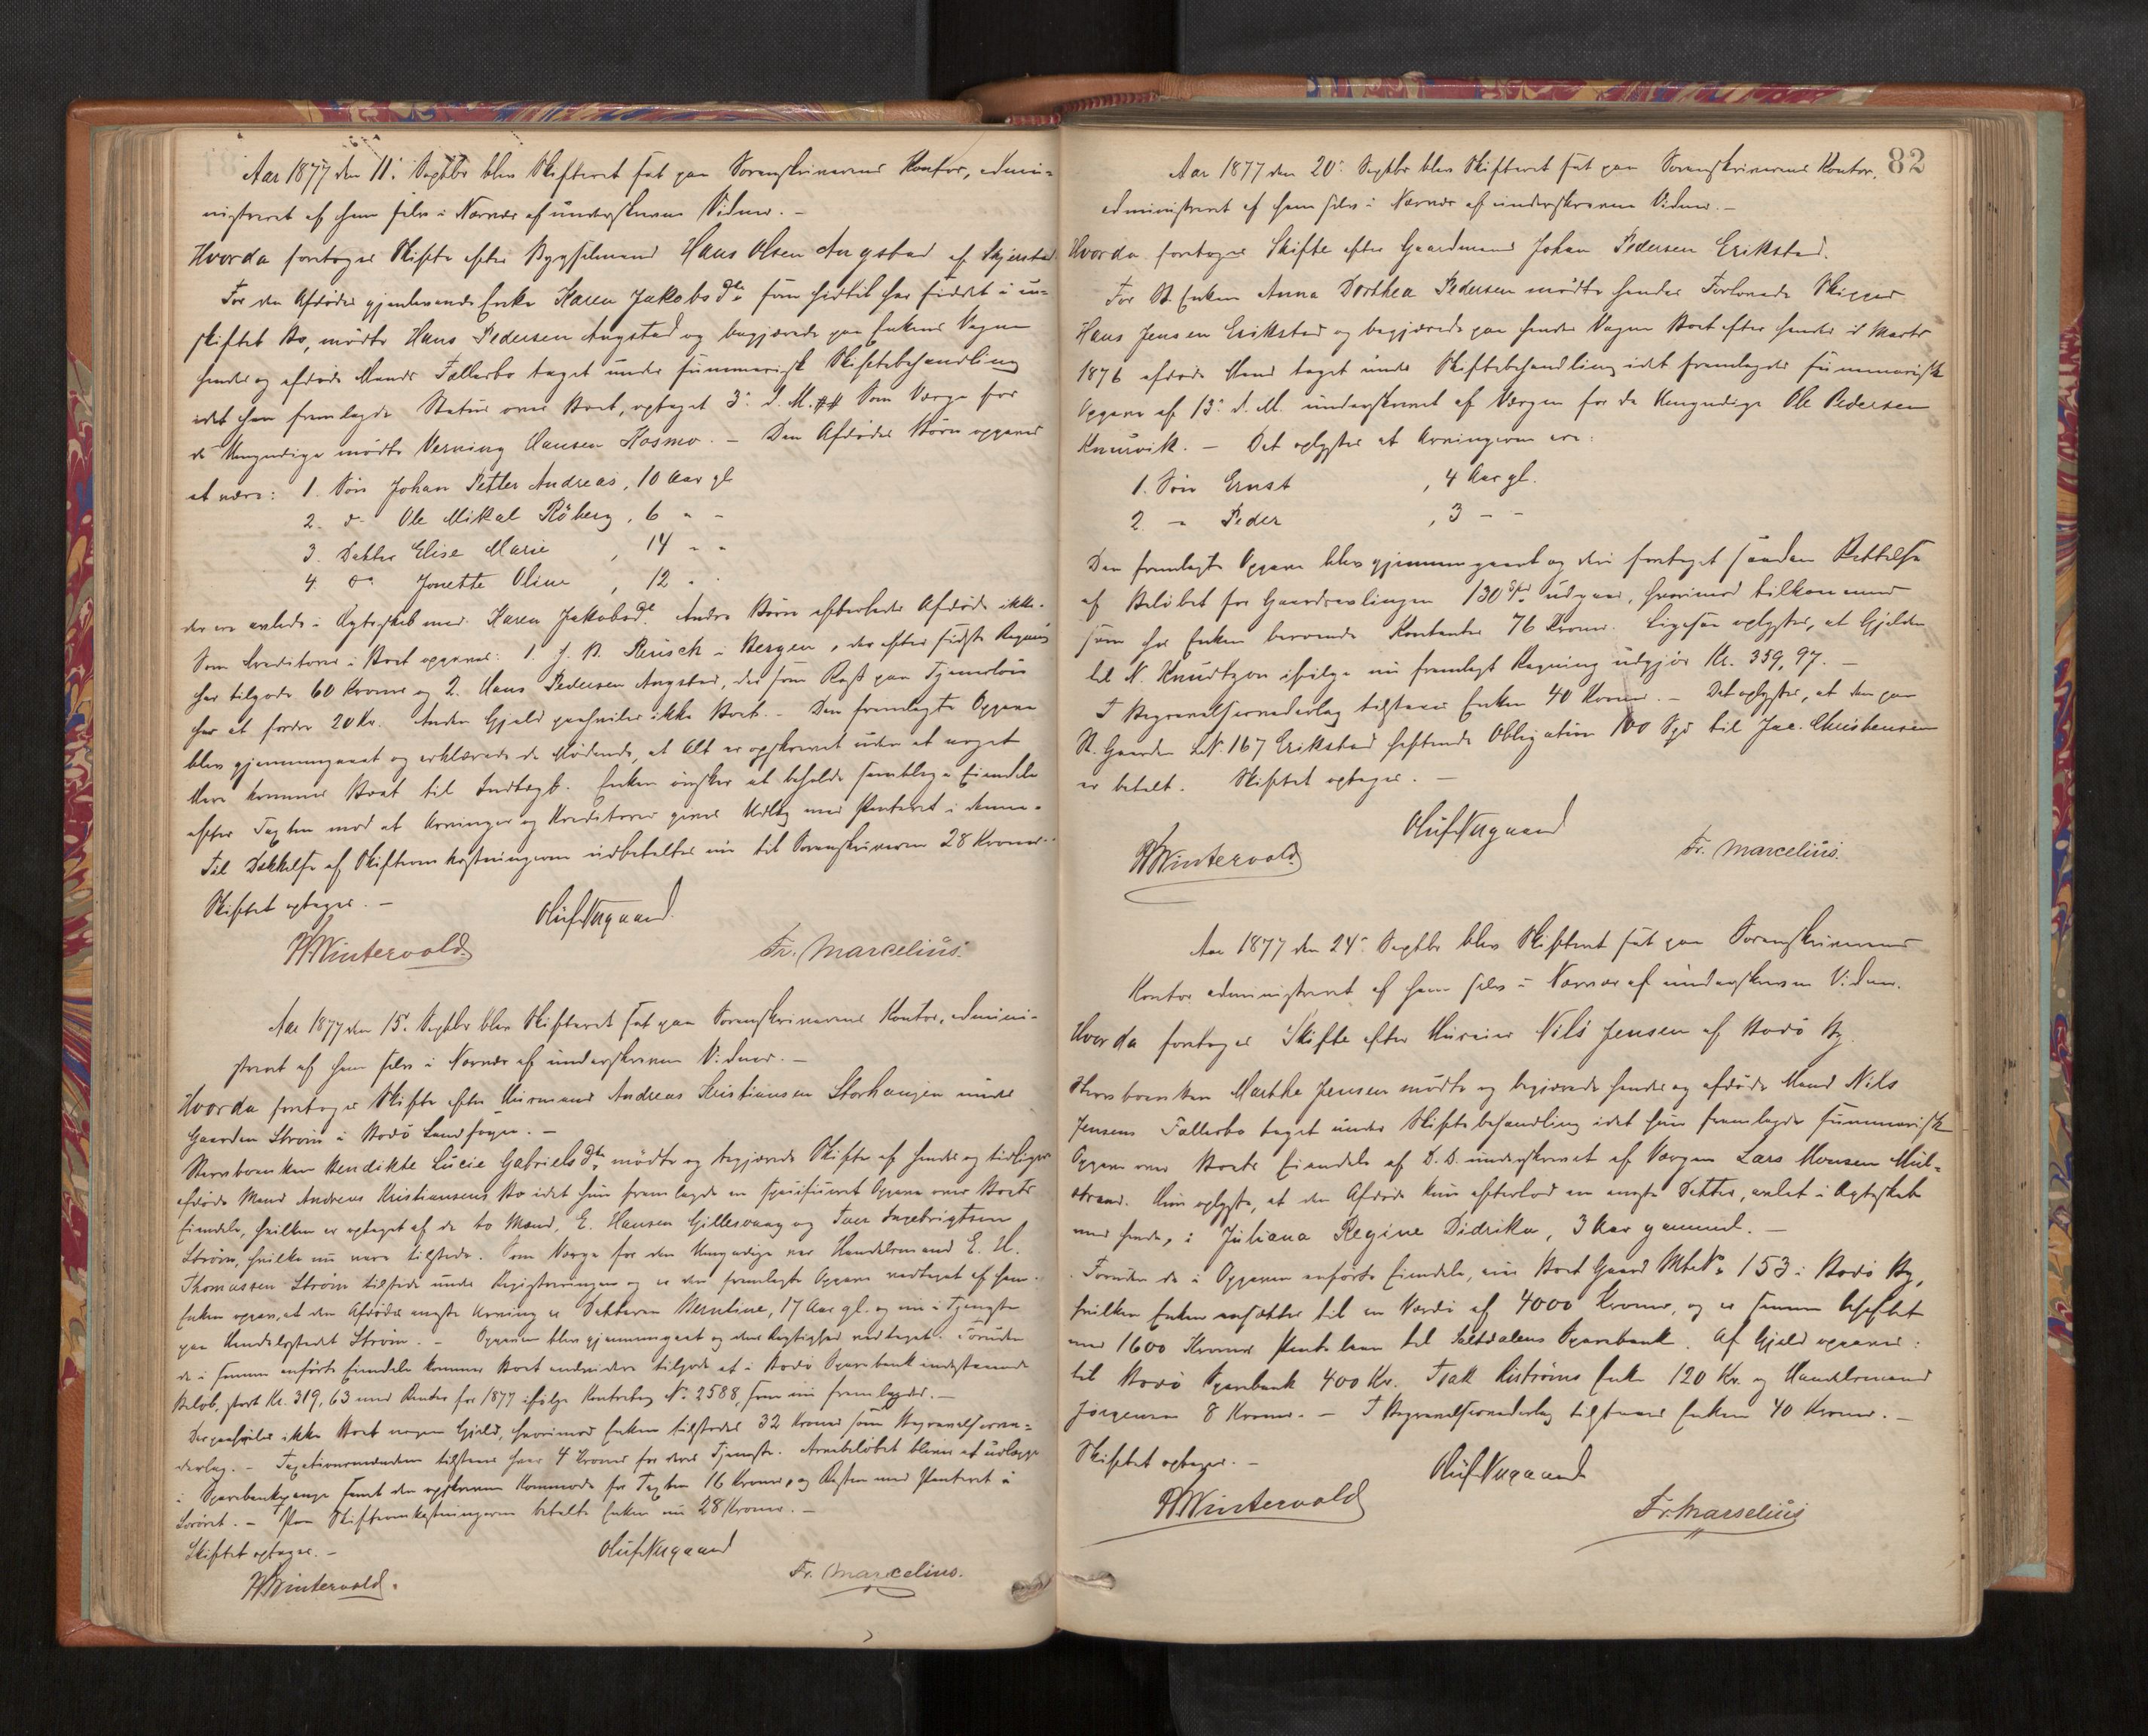 Aar 1877 den 11. Septbr blev Skifteret sat paa Sorenskriverens Kontor, admini-
nistreret af ham selv i Nærvær af underskrevne Vidner. –
Hvorda foretoges Skifte efter Bygselmand Hans Olsen Angstad af Skjerstad
For den Afdødes gjenlevende Enke Karen Jakobsdtr. som hidtil har siddet i u-
skiftet Bo, mødte Hans Pedersen Angstad og begjærede paa Enkens Vegne
hendes og afdøde Mands Fællesbo taget under summarisk Skiftebehandling
idet han fremlagde Status over Boet, optaget 3. d. M. Som Værge for
de Umyndige mødte Hansen Kosmo. – Den Afdødes Børn opgaves
at være: 1. Søn Johan Petter Andreas, 10 Aar gl
2. do Ole Mikal Röberg, 6 " "
3. Datter Elise Marie, 14 " "
4. do Jonette Oline, 12 "
der ere avlede i Ægteskab med Karen Jakobsd. Andre Børn efterlader Afdøde ikke.
Som Kreditorer i Boet opgaves: 1. J. B. i Bergen, der efter sidste Regning
har tilgode 60 Kroner og 2. Hans Pedersen Angstad, der som Rest paa Tjenerløn
har at fordre 20 Kr. Anden Gjæld paahviler ikke Boet. – Den fremlagte Opgave
blev gjennemgaaet og erklærede de Mødende, at Alt er opskrevet uden at noget
Mere kommer Boet til Indtægt. Enken ønsker at beholde samtlige Eiendele
efter Taxten mod at Arvinger og Kreditorer gives Udlæg med Panteret i denne.
Til Dækkelse af Skifteomkostningerne udbetaltes nu til Sorenskriveren 28 Kroner.
Skiftet optages. –
Oluf Aagaard.
H. Wintervold. Fr. Marcelius.
Aar 1877 den 15. Septbr blev Skifteret sat paa Sorenskriverens Kontor, admini-
streret af ham selv i Nærvær af underskrevne Vidner. –
Hvorda foretoges Skifte efter Huusmand Andreas Kristiansen Storhaugen under
Gaarden Strøm i Bodø Landsogn. –
Stervboenken Bendikte Lucie Gabrielsdtr. mødte og begjærede Skifte af hendes og tidligere
afdøde Mand Andreas Kristiansens Bo idet hun fremlagde en specificeret Opgave over Boets
Eiendele, hvilken er optaget af de to Mænd, E. Hansen Gillesvaag og Iver Ingebrigtsen
Strøm, hvilke nu vare tilstede. Som Værge for den Umyndige var Handelsmand E. H.
Thomassen Strøm tilstede under Registreringen og er den fremlagte Opgave vedtaget af ham.
Enken opgav, at den Afdødes eneste Arving er Datteren Berntine, 17 Aar gl. og nu i Tjeneste
paa Handelsstedet Strøm. – Opgaven blev gjennemgaaet og dens Rigtighed vedtaget. Foruden
de i samme anførte Eiendele kommer Boet endvidere tilgode et i Bodø Sparebank indestaaende
Beløb, stort Kr. 319,63 med Renter for 1877 ifølge Kontrabog No. 2588, som nu fremlagdes. –
Der paahviler ikke Boet nogen Gjæld, hvorimod Enken tilstodes 32 Kroner som Begravelsesve-
derlag. – Taxationsmændene tilstaaes hver 4 Kroner for deres Tjeneste. Arvebeløbet bliver at udlægge
i Sparebankpenge samt den opskrevne Kommode for Taxten 16 Kroner, og Resten med Panteret i
Løsøret. – Paa Skifteomkostningerne betalte Enken nu 28 Kroner. –
Skiftet optages. –
Oluf Aagaard
H. Wintervold. Fr. Marcelius.
82
Aar 1877 den 20. Septbr blev Skifteret sat paa Sorenskriverens Kontor,
administreret af ham selv i Nærvær af underskrevne Vidner. –
Hvorda foretoges Skifte efter Gaardmand Johan Pedersen Erikstad.
For St. Enken Anna Dorthea Pedersen mødte hendes Forlovede Skipper
Hans Jensen Erikstad og begjærede paa hendes Vegne Boet efter hendes i Marts
1876 afdøde Mand taget under Skiftebehandling idet fremlagdes summarisk
Opgave af 13. d. M. underskrevet af Værgen for de Umyndige Ole Pedersen
Knurvik. – Det oplystes at Arvingerne ere:
1. Søn Ernst, 4 Aar gl.
2. " Peder, 3 " "
Den fremlagte Opgave blev gjennemgaaet og deri foretaget saadan Rettelse
af Beløbet for 130 Spd udgaar, hvorimod tilkommer
som hos Enken beroende Kontanter 76 Kroner. Ligesaa oplystes, at Gjælden
til N. Knudtzon ifølge nu fremlagt Regning udgjør Kr. 359,97. –
I Begravelsesvederlag tilstaaes Enken 40 Kroner. – Det oplystes, at den paa
St. Gaarden LN. 167 Erikstad heftende Obligation 100 Spd til Jac. Christensen
er betalt. Skiftet optages. –
Oluf Aagaard
H. Wintervold. Fr. Marcelius.
Aar 1877 den 24. Septbr blev Skifteret sat paa Sorenskriverens
Kontor administreret af ham selv i Nærvær af underskrevne Vidner.
Hvorda foretoges Skifte efter Huseier Nils Jensen af Bodø By.
Stervboenken Marthe Jensen mødte og begjærede hendes og afdøde Mand Nils
Jensens Fællesbo taget under Skiftebehandling idet hun fremlagde summarisk
Opgave over Boets Eiendele af D. D. underskrevet af Værgen Lars Monsen Mul-
strand. Hun oplyste, at den Afdøde kun efterlod en eneste Datter, avlet i Ægteskab
med hende, : Juliana Regine Didrika, 3 Aar gammel. –
Foruden de i Opgaven anførte Eiendele, eier Boet Gaard Mt.No. 153 i Bodø By,
hvilken Enken ansætter til en Værdi af 4000 Kroner, og er samme beheftet
med 1600 Kroner Pantelaan til Saltdalens Sparebank. Af Gjæld opgaves:
til Bodø Sparebank 400 Kr. Isak Liströms Enke 120 Kr. og Handelsmand
Jørgensen 8 Kroner. – I Begravelsesvederlag tilstaaes Enken 40 Kroner. –
Skiftet optages. –
Oluf Aagaard
H. Wintervold Fr. Marselius